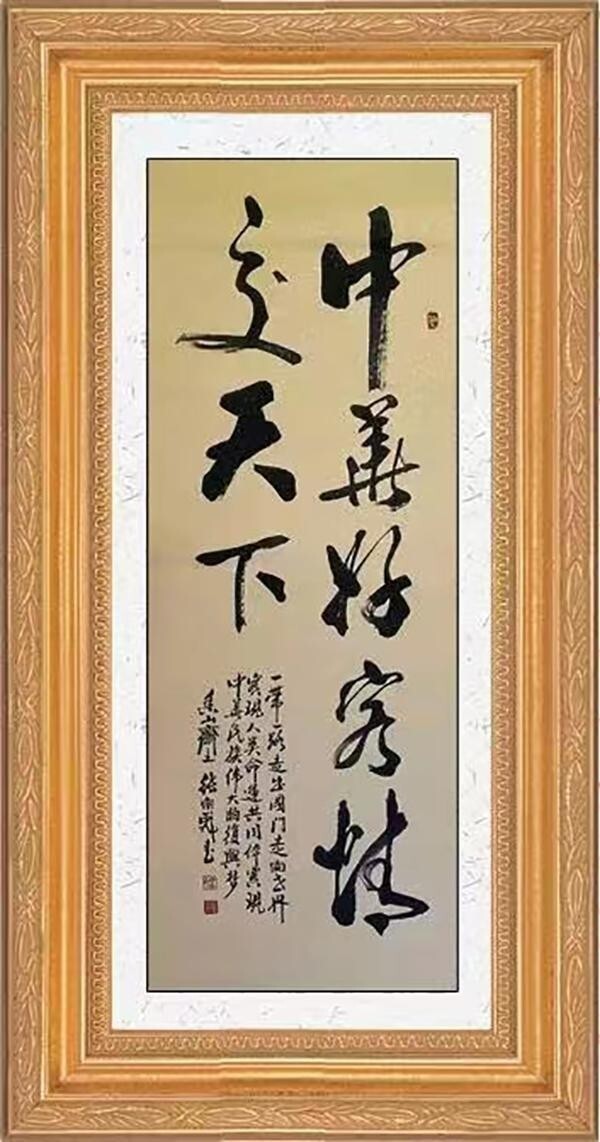 中華好客情
交天下
一带一路走出國门走向世界
实现人类命运共同体实现
中华民族伟大的復興梦